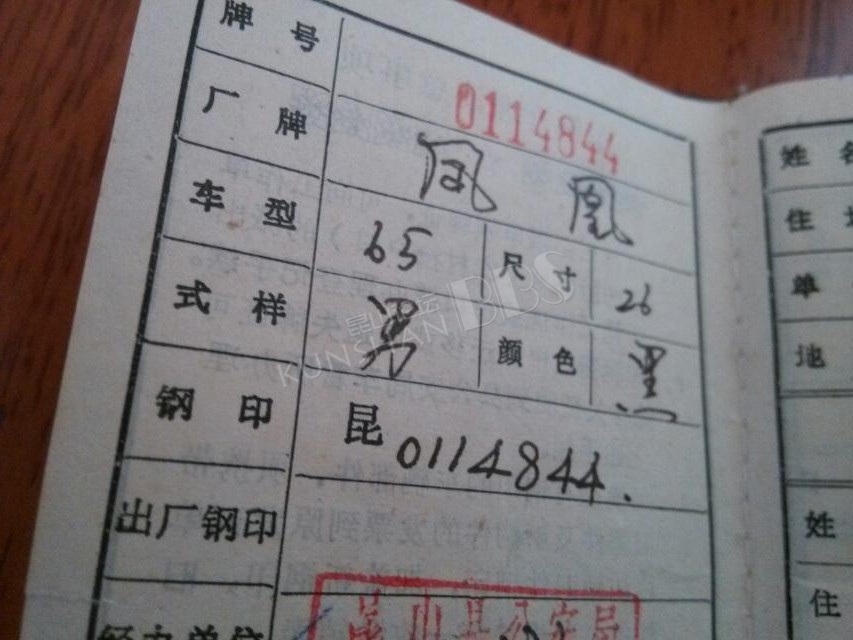 牌号 0114844
厂牌 凤凰
车型 65 尺寸 26
式样 男 颜色 黑
钢印 昆0114844.
出厂钢印
经办单位
昆山县公安局
姓名
住
单
地
姓
住
KUNSHAN BBS